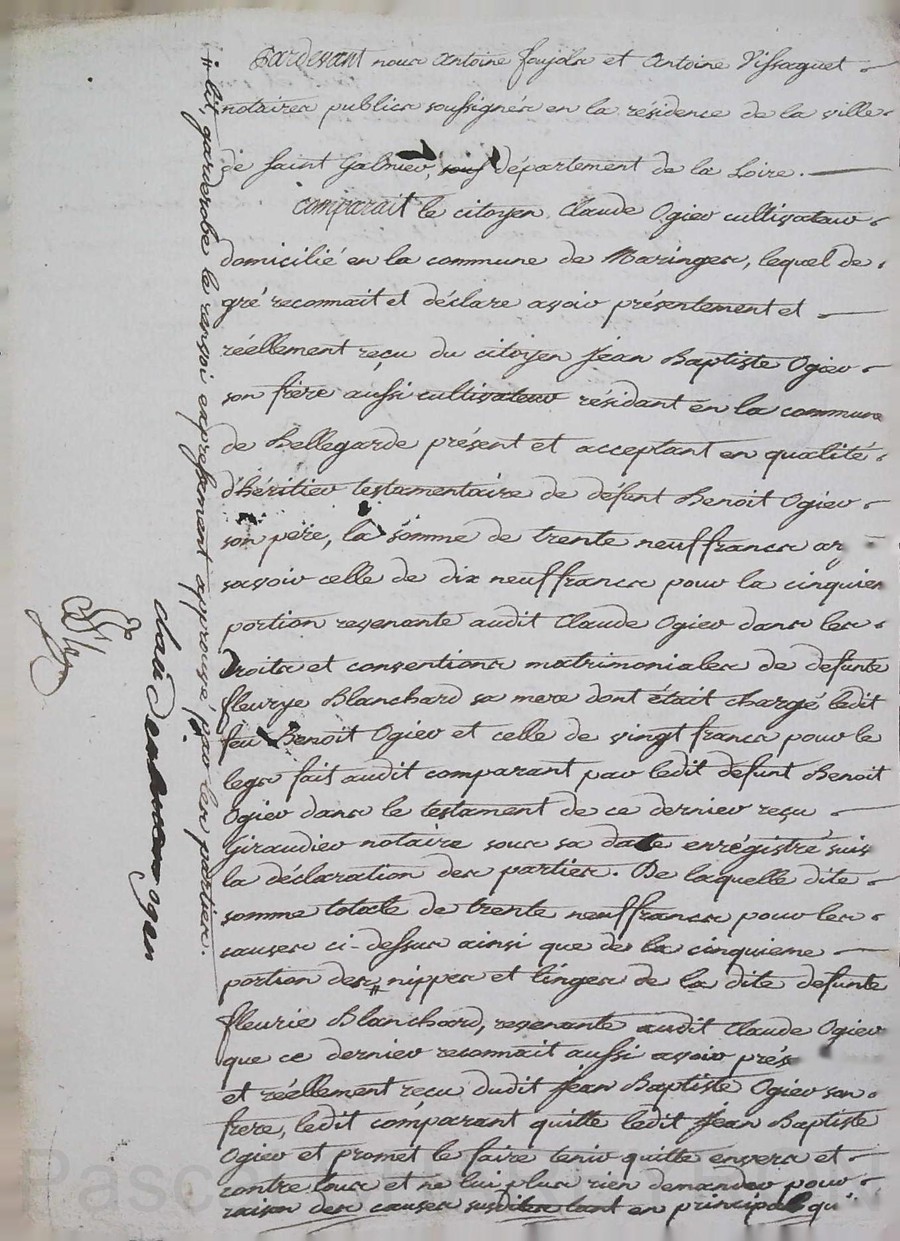 Pardevant nous Antoine foujols et Antoine Vissaguet
notaires publics soussignés en la résidence de la ville
de Saint Galmier, département de la Loire.
Comparait le citoyen Claude Ogier cultivateur
domicilié en la commune de Maringes, lequel de
gré reconnait et déclare avoir présentement et
réellement reçu du citoyen Jean Baptiste Ogier
son frère aussi cultivateur residant en la commune
de Bellegarde présent et acceptant en qualité
d'héritier testamentaire de défunt Benoit Ogier
son père, la somme de trente neuf francs
savoir celle de dix neuf francs pour la cinquiem
portion revenante audit Claude Ogier dans les
droits et conventions matrimoniales de defunte
fleurye Blanchard sa mere dont était chargé ledit
feu Benoit Ogier et celle de vingt francs pour le
legs fait audit comparant par ledit defunt Benoit
Ogier dans le testament de ce dernier reçu
Giraudier notaire sous sa date enrégistré suiv
la déclaration des parties. De laquelle dite
somme totale de trente neuf francs pour les
causes ci-dessus ainsi que de la cinquieme
portion des nippes et linges de la dite defunte
fleurie Blanchard, revenante audit Claude Ogier
que ce dernier reconnait aussi avoir prés
et réellement recu dudit Jean Baptiste Ogier son
frere, ledit comparant quitte ledit Jean Baptiste
Ogier et promet le faire tenir quitte envers et
contre tous et ne lui plus rien demander pour
raison des causes susdites tant en principal qu'
lit, garderobe le renvoi expressement approuvé par les parties.
Pascal